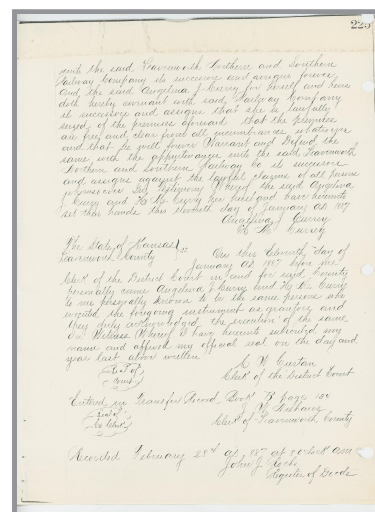 unto the said Leavenworth Northern and Southern
Railway Company its successors and assigns forever
And the said Angelina J Curry for herself and heirs
doth hereby covenant with said Railway Company
its successors and assigns that she is lawfully
seized of the premises aforesaid that the premises
are free and clear from all incumbrances whatsoever
and that he will forever Warrant and Defend the
same with the appurtenances unto the said Leavenworth
Northern and Southern Railway Co its successors
and assigns against the lawful claims of all persons
whomsoever In Testimony Whereof the said Angelina
J Curry and H. W. Curry her husband have hereunto
set their hands this Eleventh day of January AD 1887
Angelina J Curry
H W Curry
The State of Kansas } ss
Leavenworth County
On this Eleventh day of
January AD 1887 before me
Clerk of the District Court in and for said County
personally came Angelina J Curry and H W Curry
to me personally known to be the same persons who
executed the foregoing instrument as grantors and
they duly acknowledged the execution of the same
In Witness Whereof I have hereunto subscribed my
name and affixed my official seal on the day and
year last above written
Seal of
Court
Clerk of the District Court
Entered in Transfer Record Book B page
Seal of
Co Clerk
Clerk of Leavenworth County
Recorded February 28th AD 1887 at o'clock AM
John J
Register of Deeds